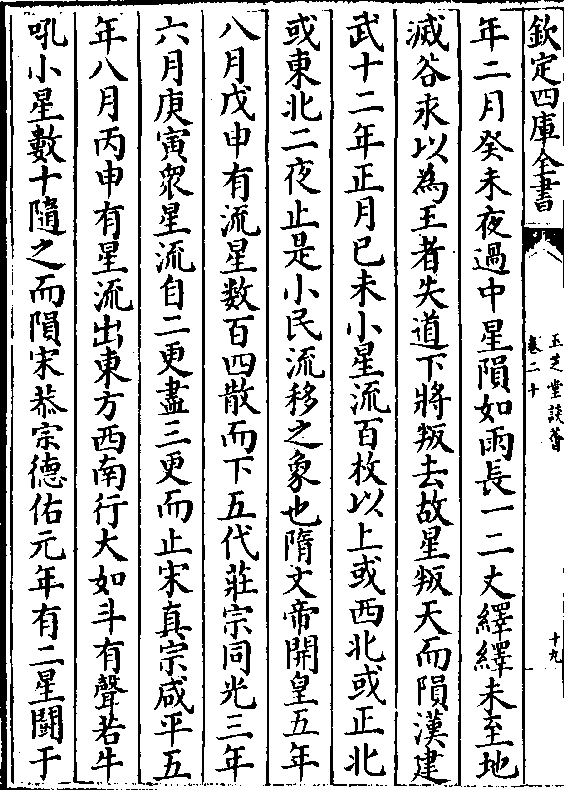 欽定四庫全書
玉芝堂談薈
卷二十
十九
年二月癸未夜過中星隕如雨長一二丈繹繹未至地
滅谷永以為王者失道下將叛去故星叛天而隕漢建
武十二年正月己未小星流百枚以上或西北或正北
或東北二夜止是小民流移之象也隋文帝開皇五年
八月戊申有流星数百四散而下五代莊宗同光三年
六月庚寅衆星流自二更盡三更而止宋真宗咸平五
年八月丙申有星流出東方西南行大如斗有聲若牛
吼小星數十隨之而隕宋恭宗德佑元年有二星鬭于